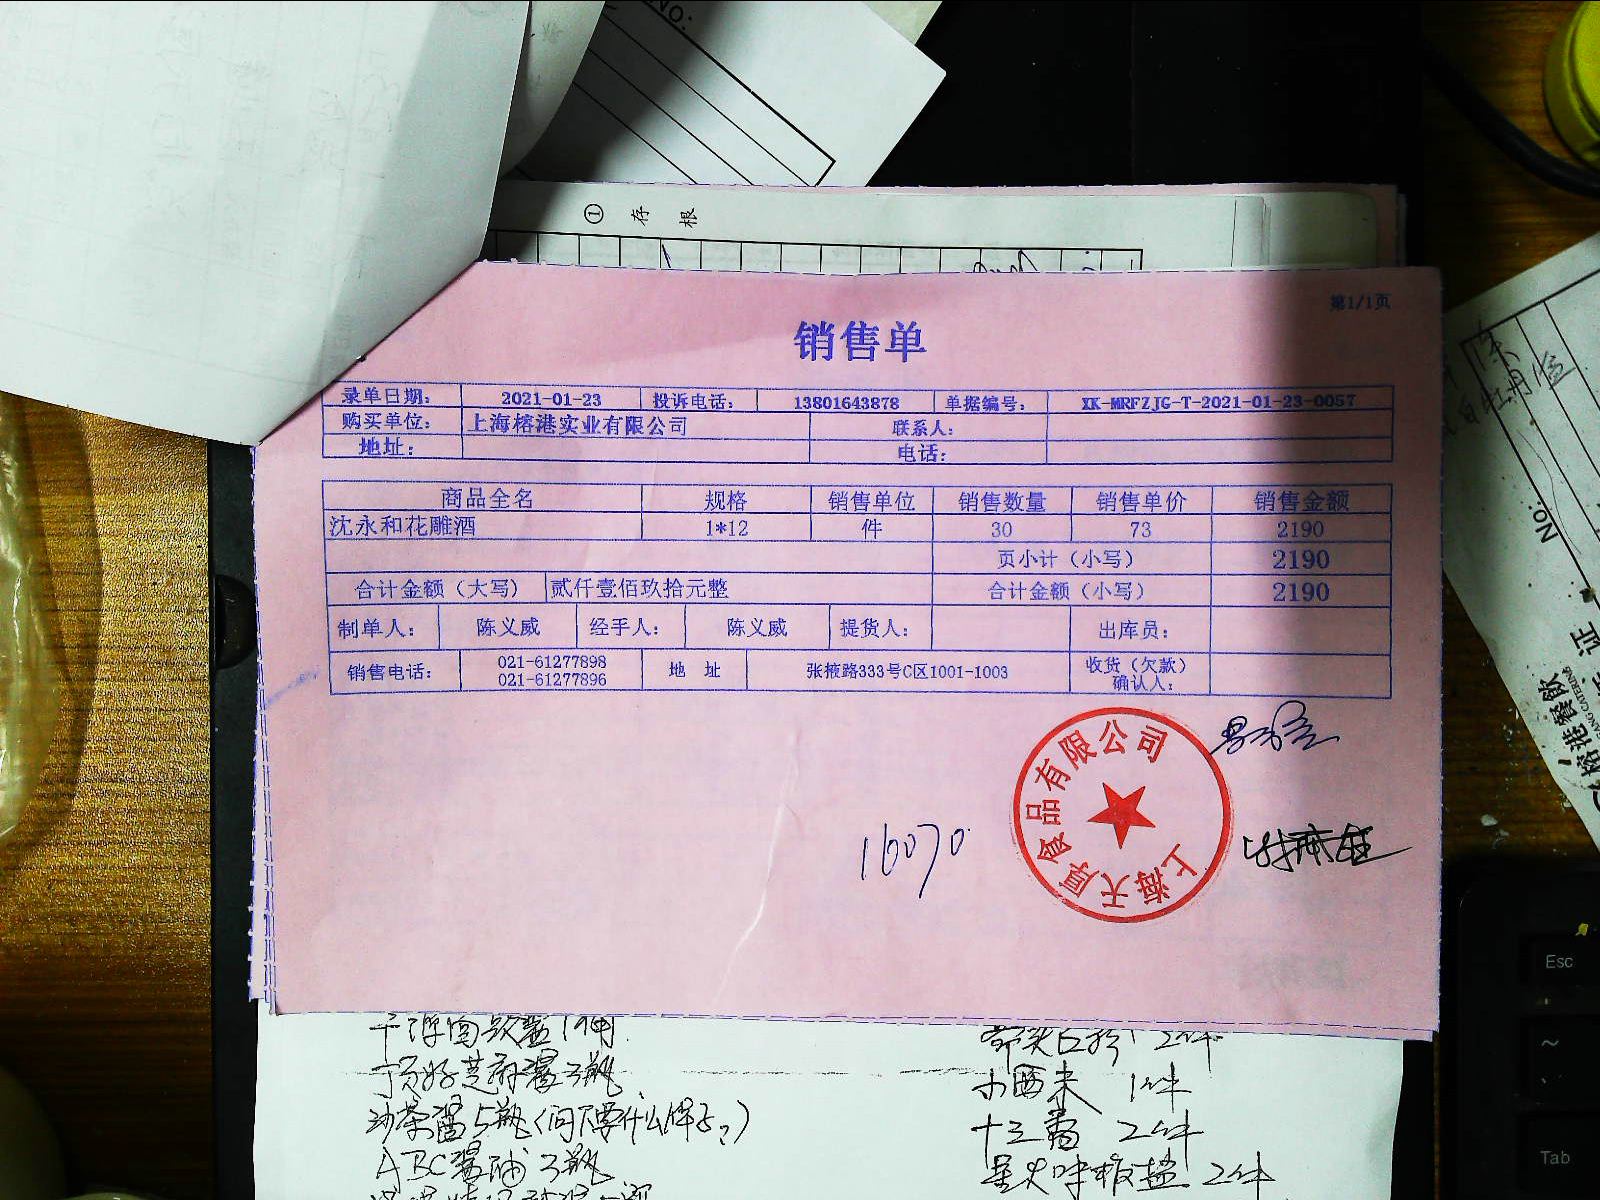 NO:
① 存 根
第1/1页
销售单
录单日期: 2021-01-23 投诉电话: 13801643878 单据编号: XK-MRFZJG-T-2021-01-23-0057
购买单位: 上海榕港实业有限公司 联系人:
地址: 电话:
商品全名 规格 销售单位 销售数量 销售单价 销售金额
沈永和花雕酒 1*12 件 30 73 2190
页小计（小写） 2190
合计金额（大写） 贰仟壹佰玖拾元整 合计金额（小写） 2190
制单人: 陈义威 经手人: 陈义威 提货人: 出库员:
销售电话: 021-61277898 021-61277896 地 址 张掖路333号C区1001-1003 收货（欠款）确认人:
上海天厚食品有限公司
16070
NO:
证
榕港餐飲
顶好芝麻酱3瓶
沙茶酱5瓶(问只要什么牌子?)
ABC酱油3瓶
小西米 1件
2件
2件
Esc
~
Tab